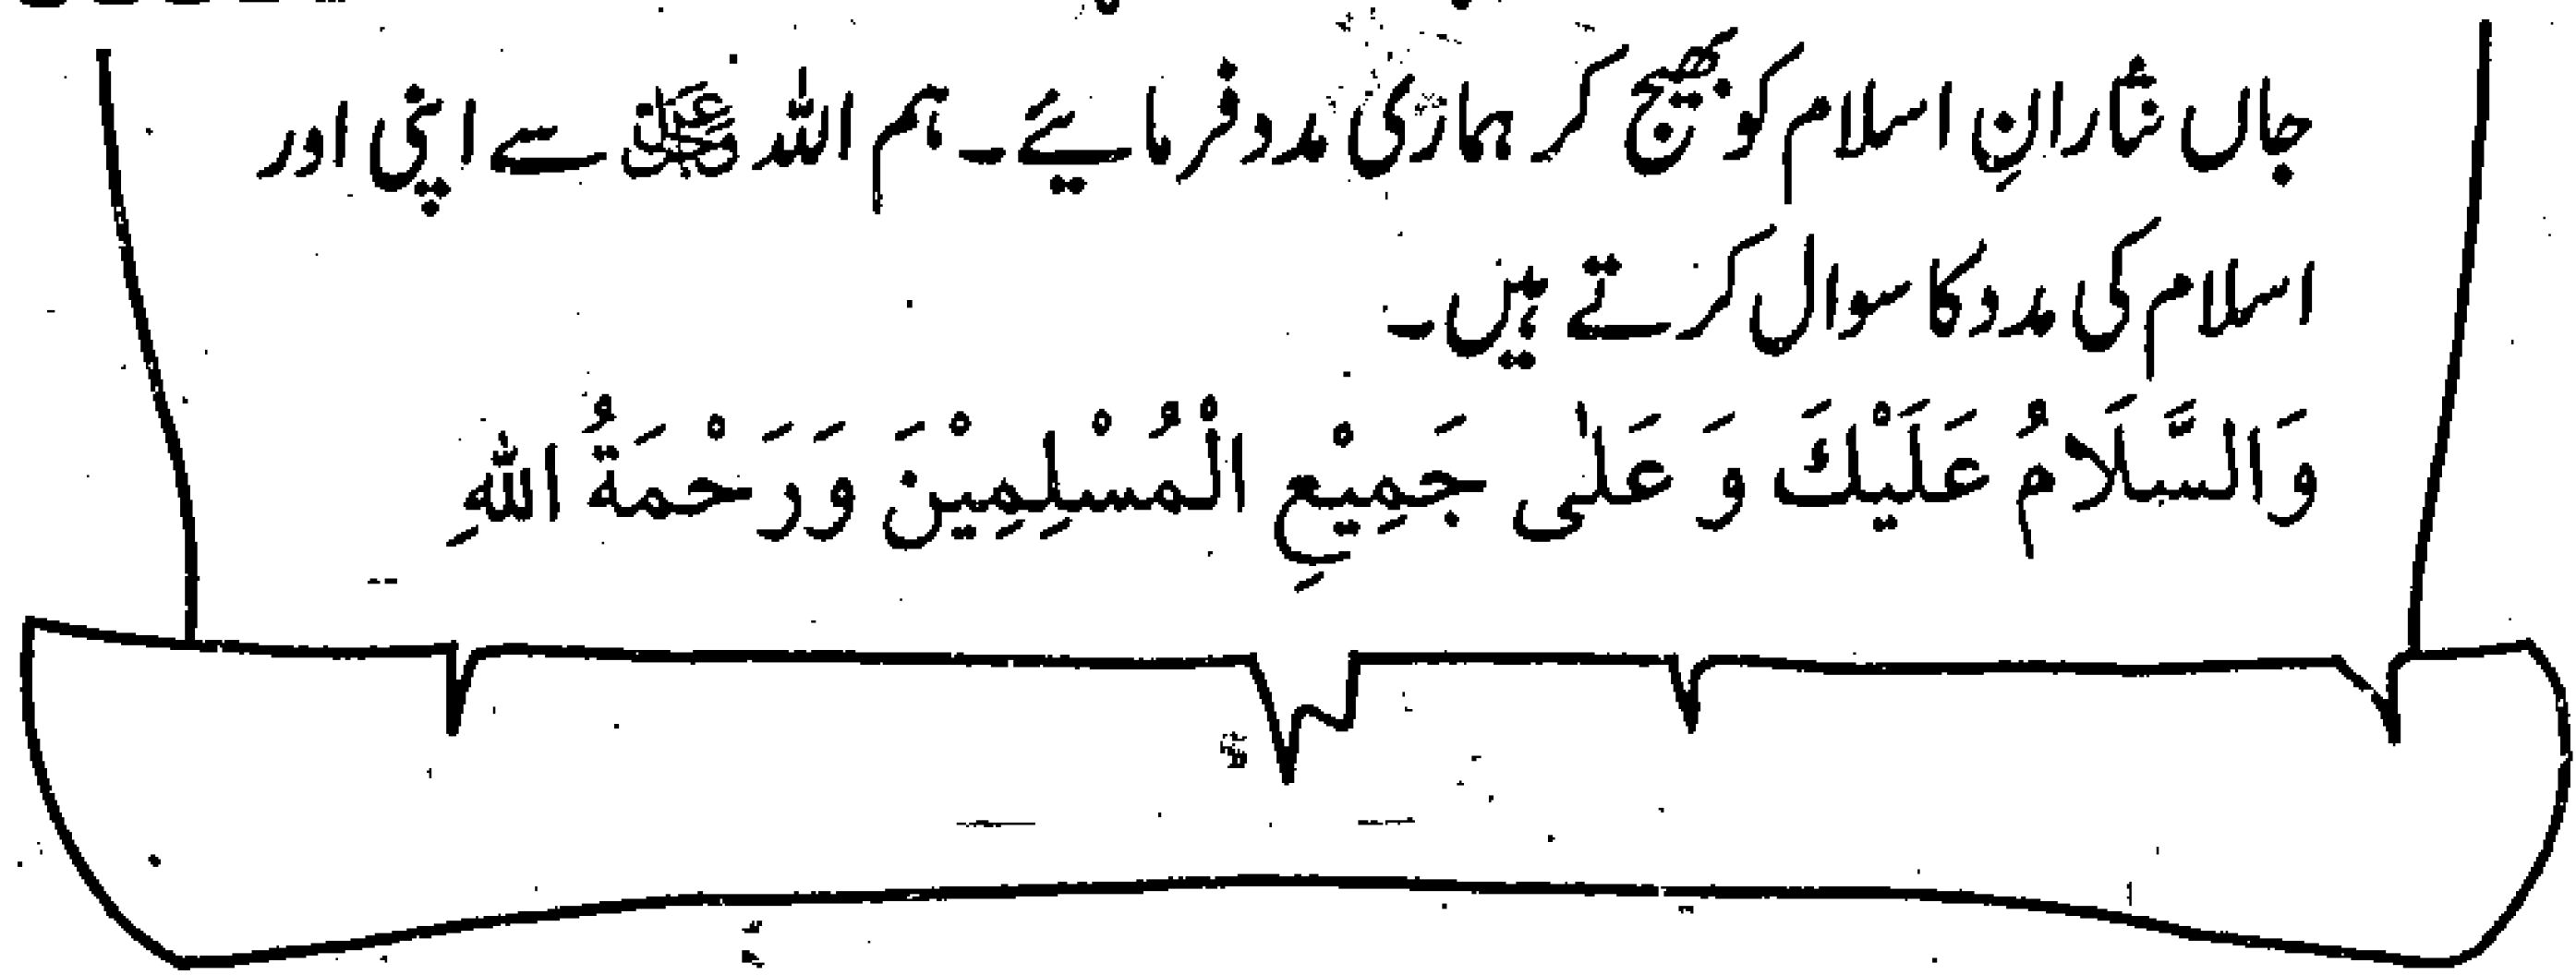 جاں نثارانِ اسلام کو بھیج کر ہماری مدد فرمایئے۔ ہم اللہ عزوجل سے اپنی اور
اسلام کی مدد کا سوال کرتے ہیں۔
وَالسَّلَامُ عَلَيْكَ وَ عَلٰى جَمِيْعِ الْمُسْلِمِيْنَ وَرَحْمَةُ اللهِ